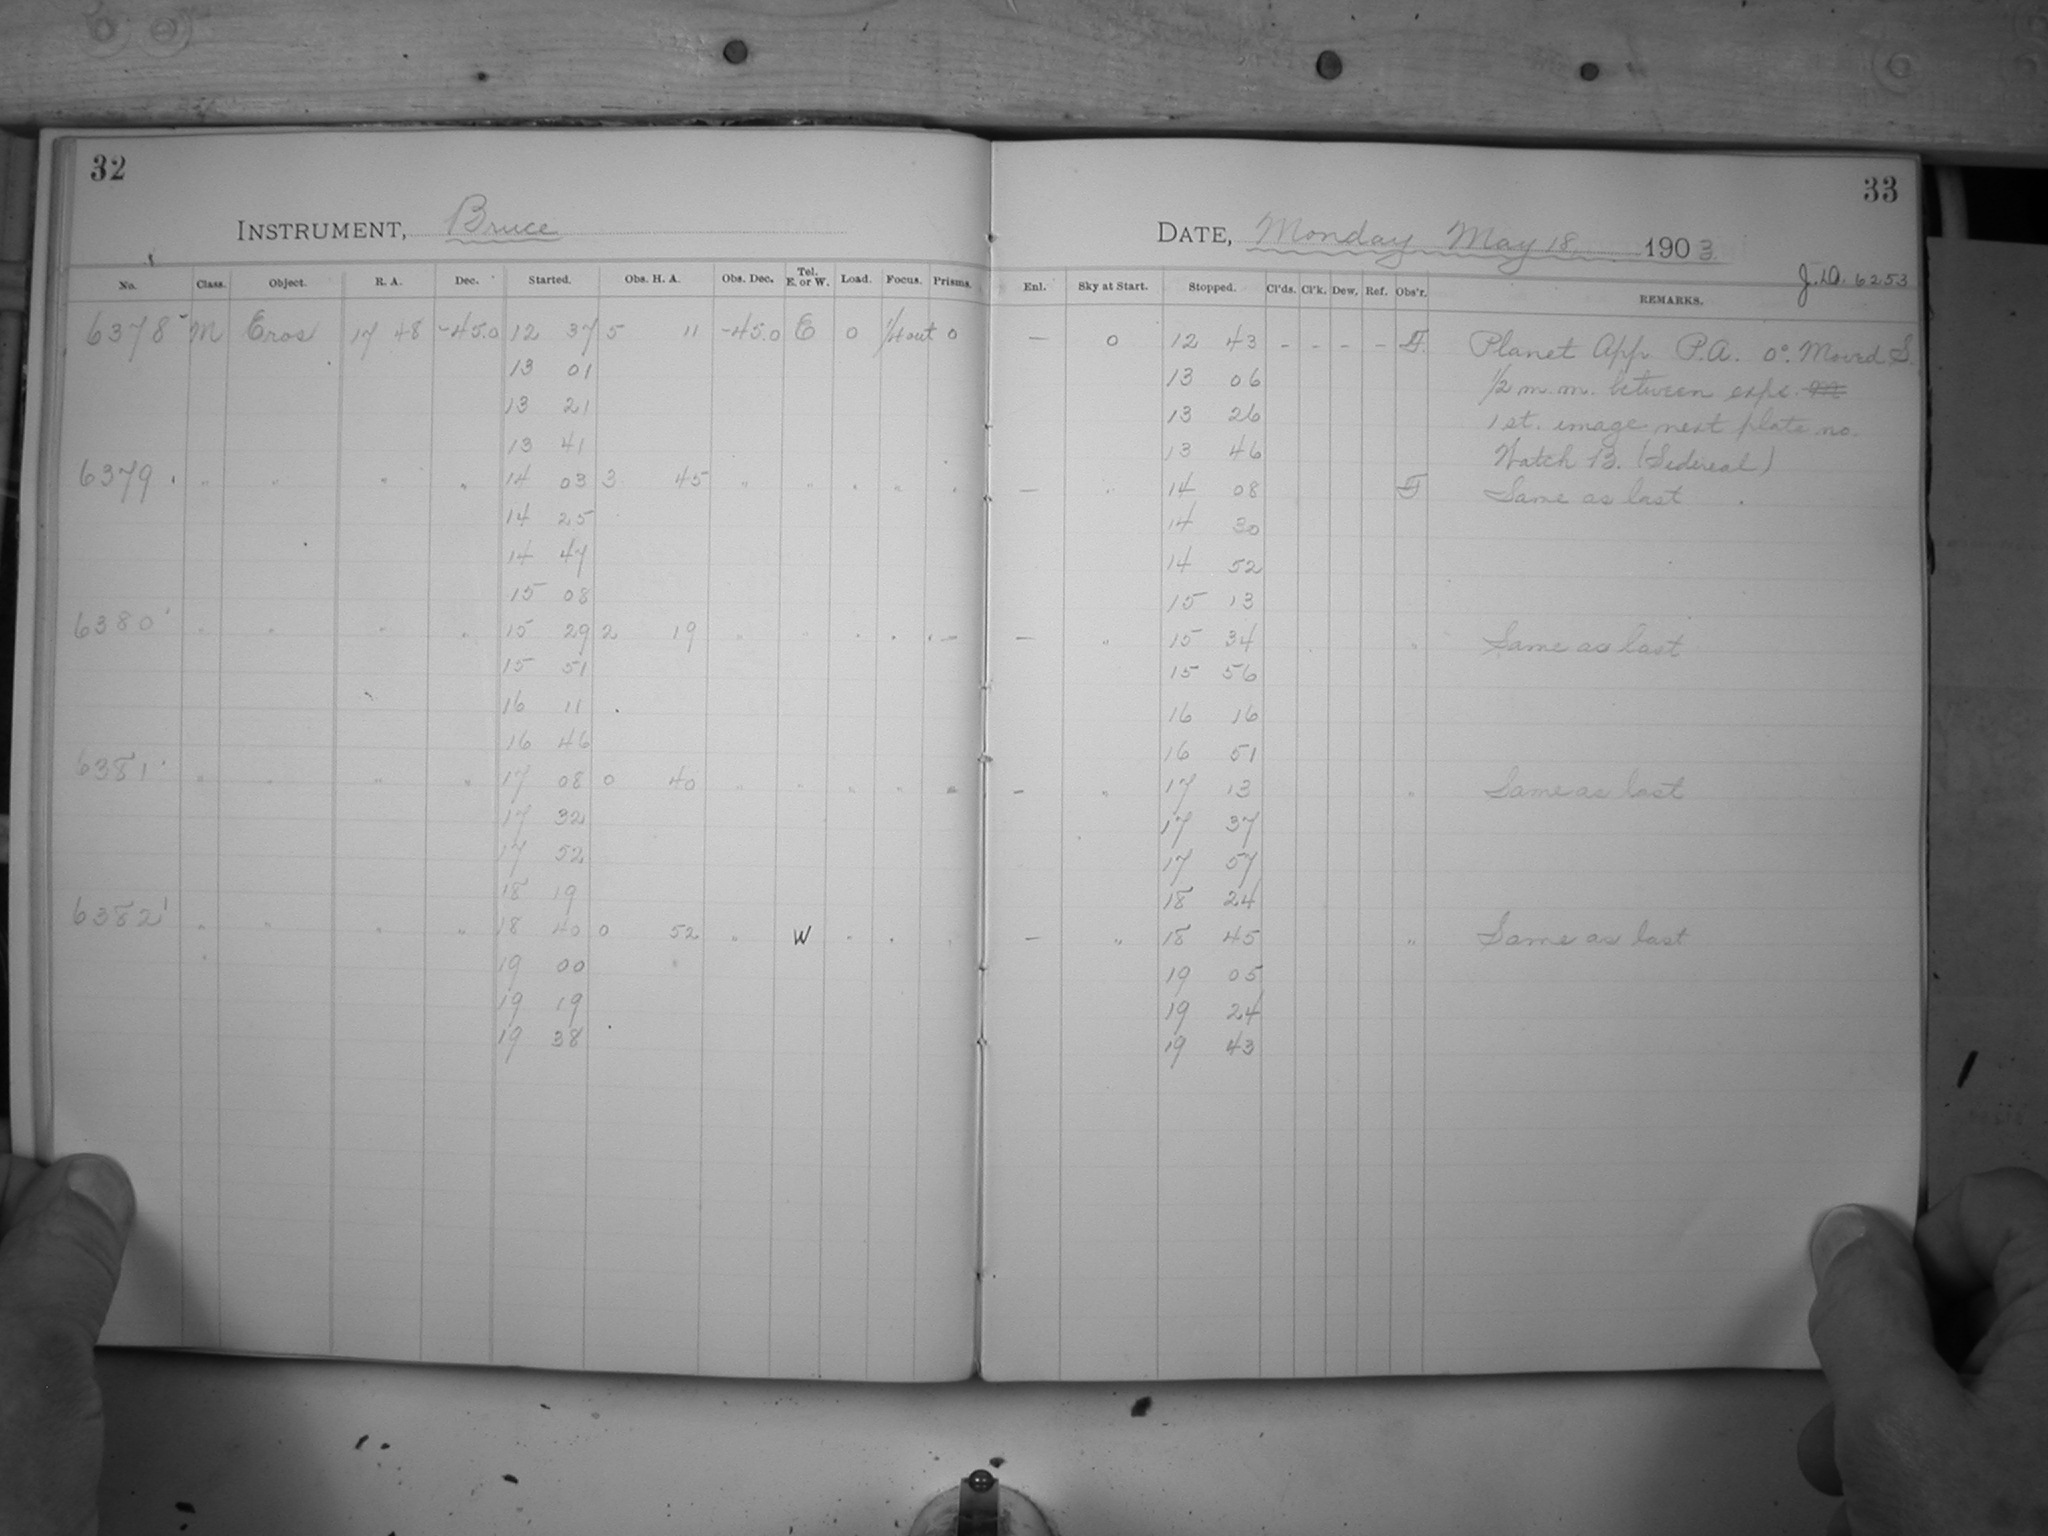 32
INSTRUMENT, Bruce
No. Class. Object. R. A. Dec. Started. Obs. H. A. Obs. Dec. Tel. E. or W. Load. Focus. Prisms.
6378 M Eros 17 48 -45.0 12 37 5 11 -45.0 E 0 1/4 out 0
13 01
13 21
13 41
6379 " " " " 14 03 3 45 " " " " "
14 25
14 47
15 08
6380 " " " " 15 29 2 19 " " " " -
15 51
16 11
16 46
6381 " " " " 17 08 0 40 " " " " "
17 32
17 52
18 19
6382 " " " " 18 40 0 52 " W " " "
19 00
19 19
19 38
33
DATE, Monday May 18 1903
J.D. 6253
Enl. Sky at Start. Stopped. Cl'ds. Cl'k. Dew. Ref. Obs'r. REMARKS.
— 0 12 43 - - - - Planet App. P.A. 0°. Moved S.
13 06 1/2 m.m. between exps.
13 26 1st. image next plate no.
13 46 Watch B. (Sidereal)
— " 14 08 Same as last
14 30
14 52
15 13
— " 15 34 " Same as last
15 56
16 16
16 51
- " 17 13 " Same as last
17 37
17 57
18 24
— " 18 45 " Same as last
19 05
19 24
19 43